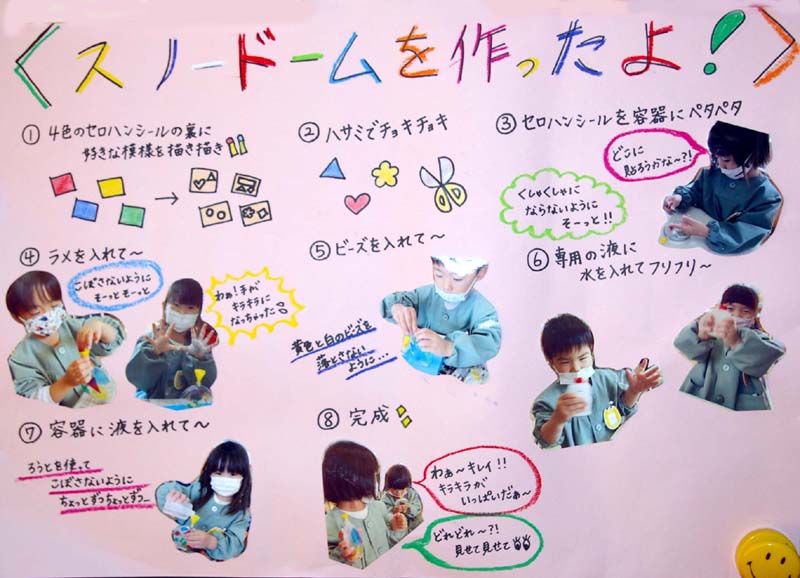 〈スノードームを作ったよ！〉
① 4色のセロハンシールの裏に
好きな模様を描き描き
② ハサミでチョキチョキ
③ セロハンシールを容器にペタペタ
どこに
貼ろうかな〜?!
くしゃくしゃに
ならないように
そーっと!!
④ ラメを入れて〜
こぼさないように
そーっとそーっと
わぁ！手が
キラキラに
なっちゃった
⑤ ビーズを入れて〜
黄色と白のビーズを
落とさない
ように…
⑥ 専用の液に
水を入れてフリフリ〜
⑦ 容器に液を入れて〜
ろうとを使って
こぼさないように
ちょっとずつちょっとずつ
⑧ 完成
わぁ〜キレイ!!
キラキラが
いっぱいだぁ〜
どれどれ〜?!
見せて見せて